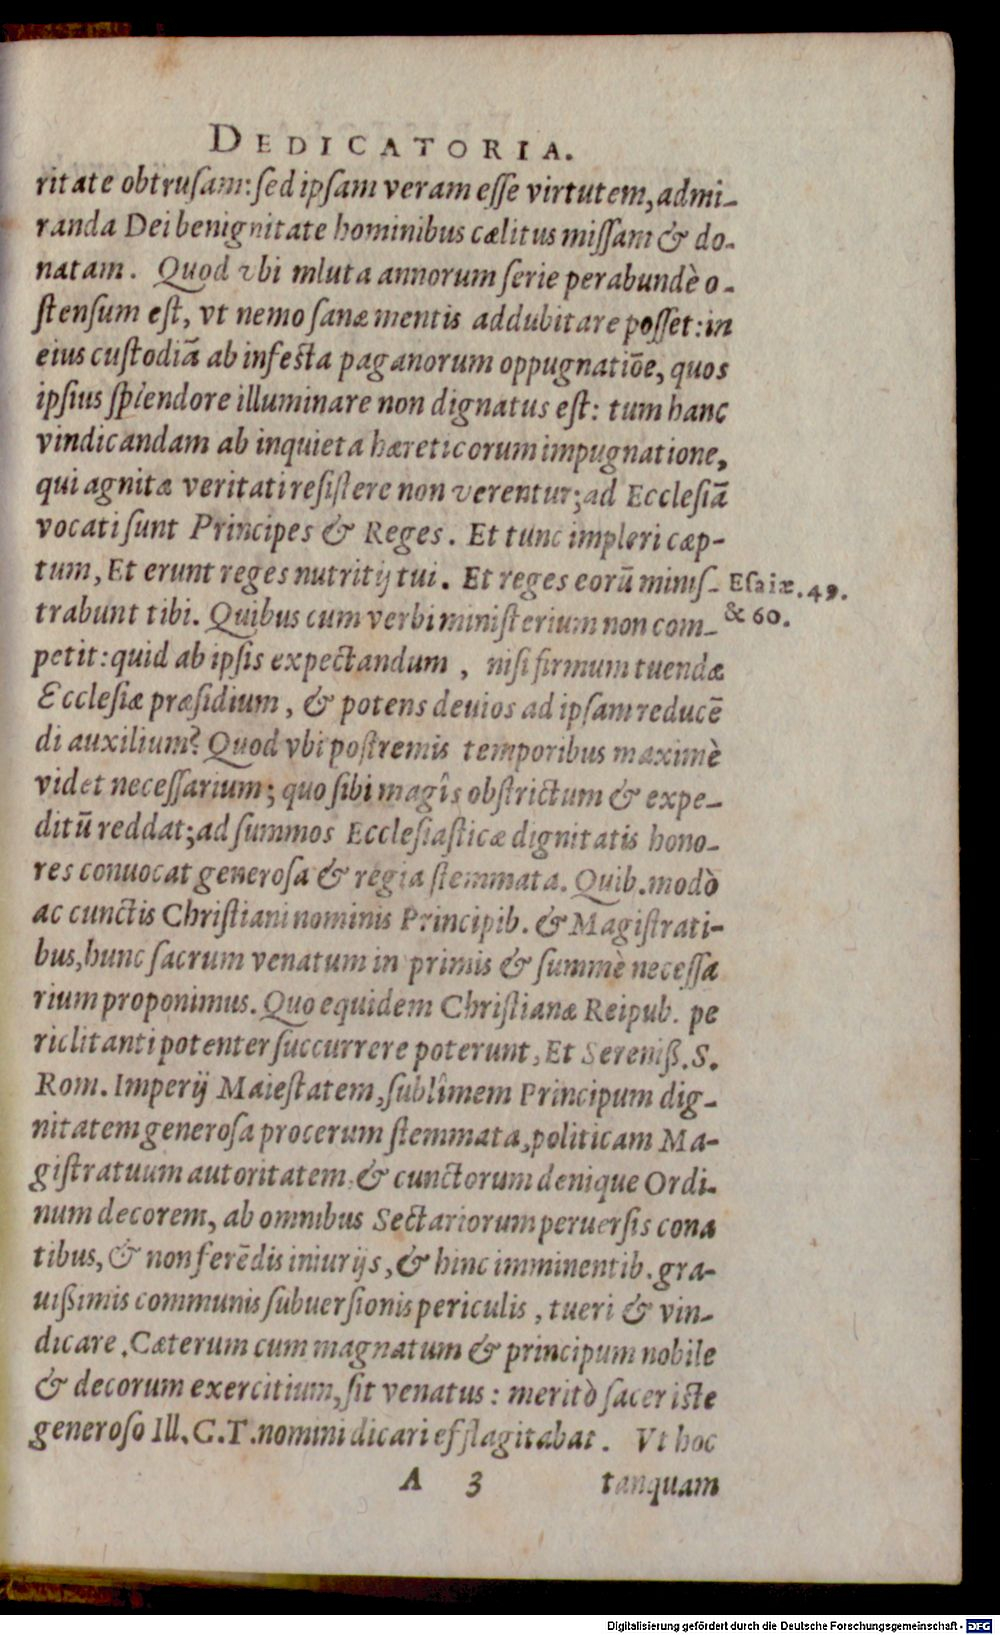 DEDICATORIA.
ritate obtrusam: sed ipsam veram esse virtutem, admi-
randa Dei benignitate hominibus cælitus missam & do-
natam. Quod vbi mluta annorum serie perabundè o-
stensum est, vt nemo sanæ mentis addubitare posset: in
eius custodiā ab infesta paganorum oppugnatiōe, quos
ipsius splendore illuminare non dignatus est: tum hanc
vindicandam ab inquieta hæreticorum impugnatione,
qui agnitæ veritati resistere non verentur; ad Ecclesiā
vocati sunt Principes & Reges. Et tunc impleri cæp-
tum, Et erunt reges nutritij tui. Et reges eorū minis- Esaiæ. 49.
trabunt tibi. Quibus cum verbi ministerium non com- & 60.
petit: quid ab ipsis expectandum, nisi firmum tuendæ
Ecclesiæ præsidium, & potens deuios ad ipsam reducē
di auxilium? Quod vbi postremis temporibus maximè
videt necessarium; quo sibi magîs obstrictum & expe-
ditū reddat; ad summos Ecclesiasticæ dignitatis hono-
res conuocat generosa & regia stemmata. Quib. modò
ac cunctis Christiani nominis Principib. & Magistrati-
bus, hunc sacrum venatum in primis & summè necessa
rium proponimus. Quo equidem Christianæ Reipub. pe
riclitanti potenter succurrere poterunt, Et Sereniß. S.
Rom. Imperij Maiestatem, sublîmem Principum dig-
nitatem generosa procerum stemmata, politicam Ma-
gistratuum autoritatem, & cunctorum denique Ordi-
num decorem, ab omnibus Sectariorum peruersis cona
tibus, & non ferēdis iniurijs, & hinc imminentib. gra-
uißimis communis subuersionis periculis, tueri & vin-
dicare. Cæterum cum magnatum & principum nobile
& decorum exercitium, sit venatus: meritò sacer iste
generoso Ill. C. T. nomini dicari efflagitabat. Vt hoc
A 3 tanquam
Digitalisierung gefördert durch die Deutsche Forschungsgemeinschaft - DFG